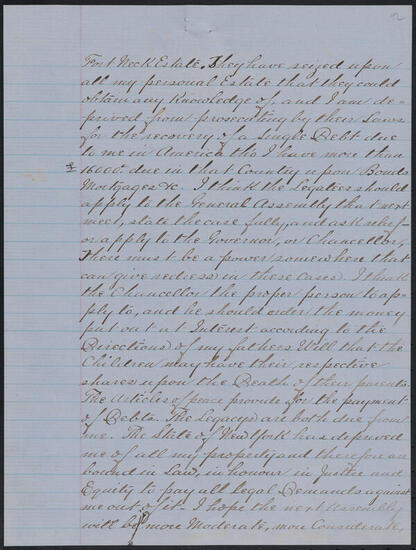 2
Fort Neck Estate. They have seized upon
all my personal Estate that they could
obtain any Knowledge of, and I am de-
prived from prosecuting by their Laws
for the recovery of a Single Debt due
to me in America tho I have more than
£16000. due in that Country upon Bonds
Mortgages &c. I think the Legatees should
apply to the General Assembly that next
meet, state the case fully, and ask relief -
or apply to the Governor, or Chancellor,
There must be a power somewhere that
can give redress in these cases. I think
the Chancellor the proper person to ap-
ply to, and he should order the money
put out at Interest according to the
Directions of my fathers Will that the
Children may have their, respective
shares upon the Death of their parents.
The Articles of peace provide for the payment
of Debts. The Legacys are both due from
me. The State of New York has deprived
me of all my property and therefore are
bound in Law, in honour in Justice and
Equity to pay all legal Demands against
me out of it. I hope the next Assembly
will be more Moderate, more Considerate,